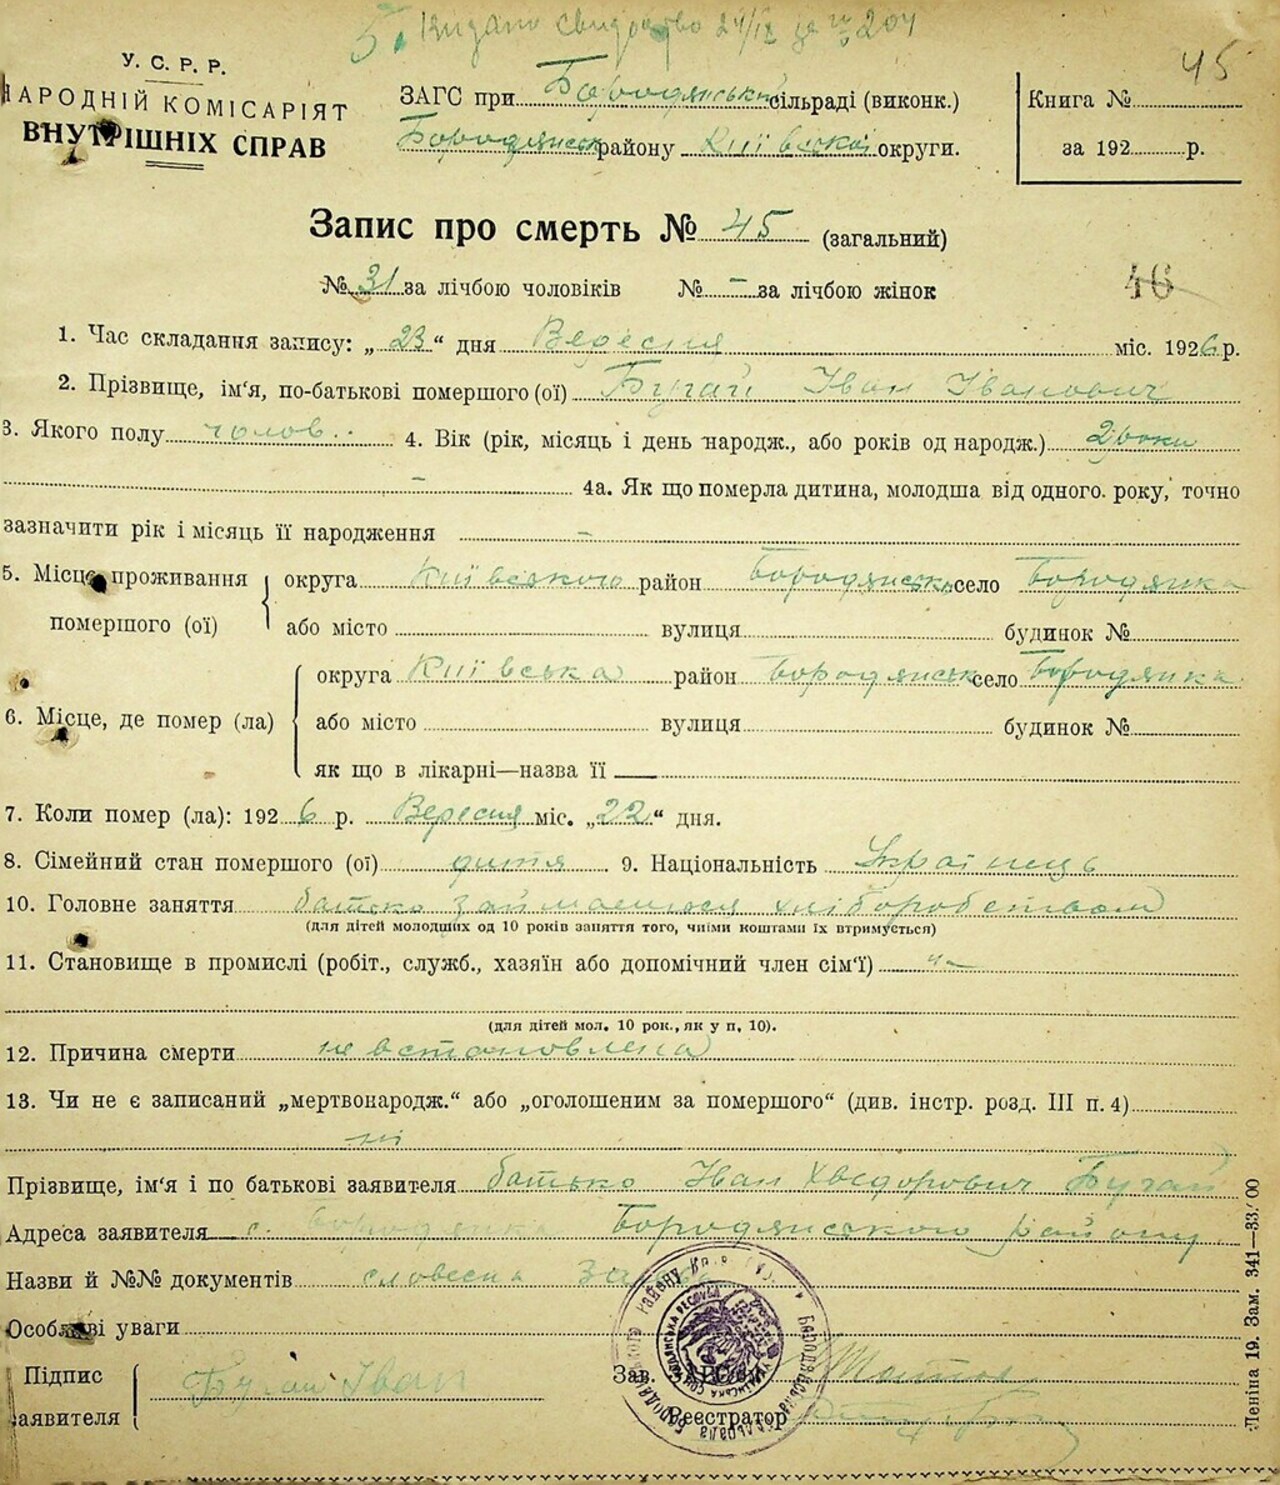 5. Видано свидоцтво 24/IX за № 204
45
У. С. Р. Р.
НАРОДНІЙ КОМІСАРІЯТ
ВНУТРІШНІХ СПРАВ
ЗАГС при Бородянській сільраді (виконк.)
Бородянськ району Київської округи.
Книга №
за 192 р.
Запис про смерть № 45 (загальний)
№ 31 за лічбою чоловіків № – за лічбою жінок
46
1. Час складання запису: „23“ дня Вересня міс. 1926 р.
2. Прізвище, ім‘я, по-батькові помершого (ої) Бугай Іван Іванович
3. Якого полу чолов.. 4. Вік (рік, місяць і день народж., або років од народж.) 2 роки
– 4а. Як що померла дитина, молодша від одного. року, точно
зазначити рік і місяць її народження –
5. Місце проживання помершого (ої) округа Київського район Бородянськ село Бородянка
або місто вулиця будинок №
6. Місце, де помер (ла) округа Київська район Бородянськ село Бородянка
або місто вулиця будинок №
як що в лікарні—назва її
7. Коли помер (ла): 1926 р. Вересня міс. „22“ дня.
8. Сімейний стан помершого (ої) дитя 9. Національність Українець
10. Головне заняття батько займається хліборобством
(для дітей молодших од 10 років заняття того, чиїми коштами їх втримується)
11. Становище в промислі (робіт., служб., хазяїн або допомічний член сім‘ї) „–
(для дітей мол. 10 рок., як у п. 10).
12. Причина смерти не встановлена
13. Чи не є записаний „мертвонародж.“ або „оголошеним за помершого“ (див. інстр. розд. III п. 4)
ні
Прізвище, ім‘я і по батькові заявителя батько Іван Хведорович Бугай
Адреса заявителя с. Бородянка Бородянського району
Назви й №№ документів словесна заява
Особливі уваги
Підпис заявителя Бугай Іван
Зав. ЗАГС‘ом
Реєстратор
Леніна 19. Зам. 341—33.000